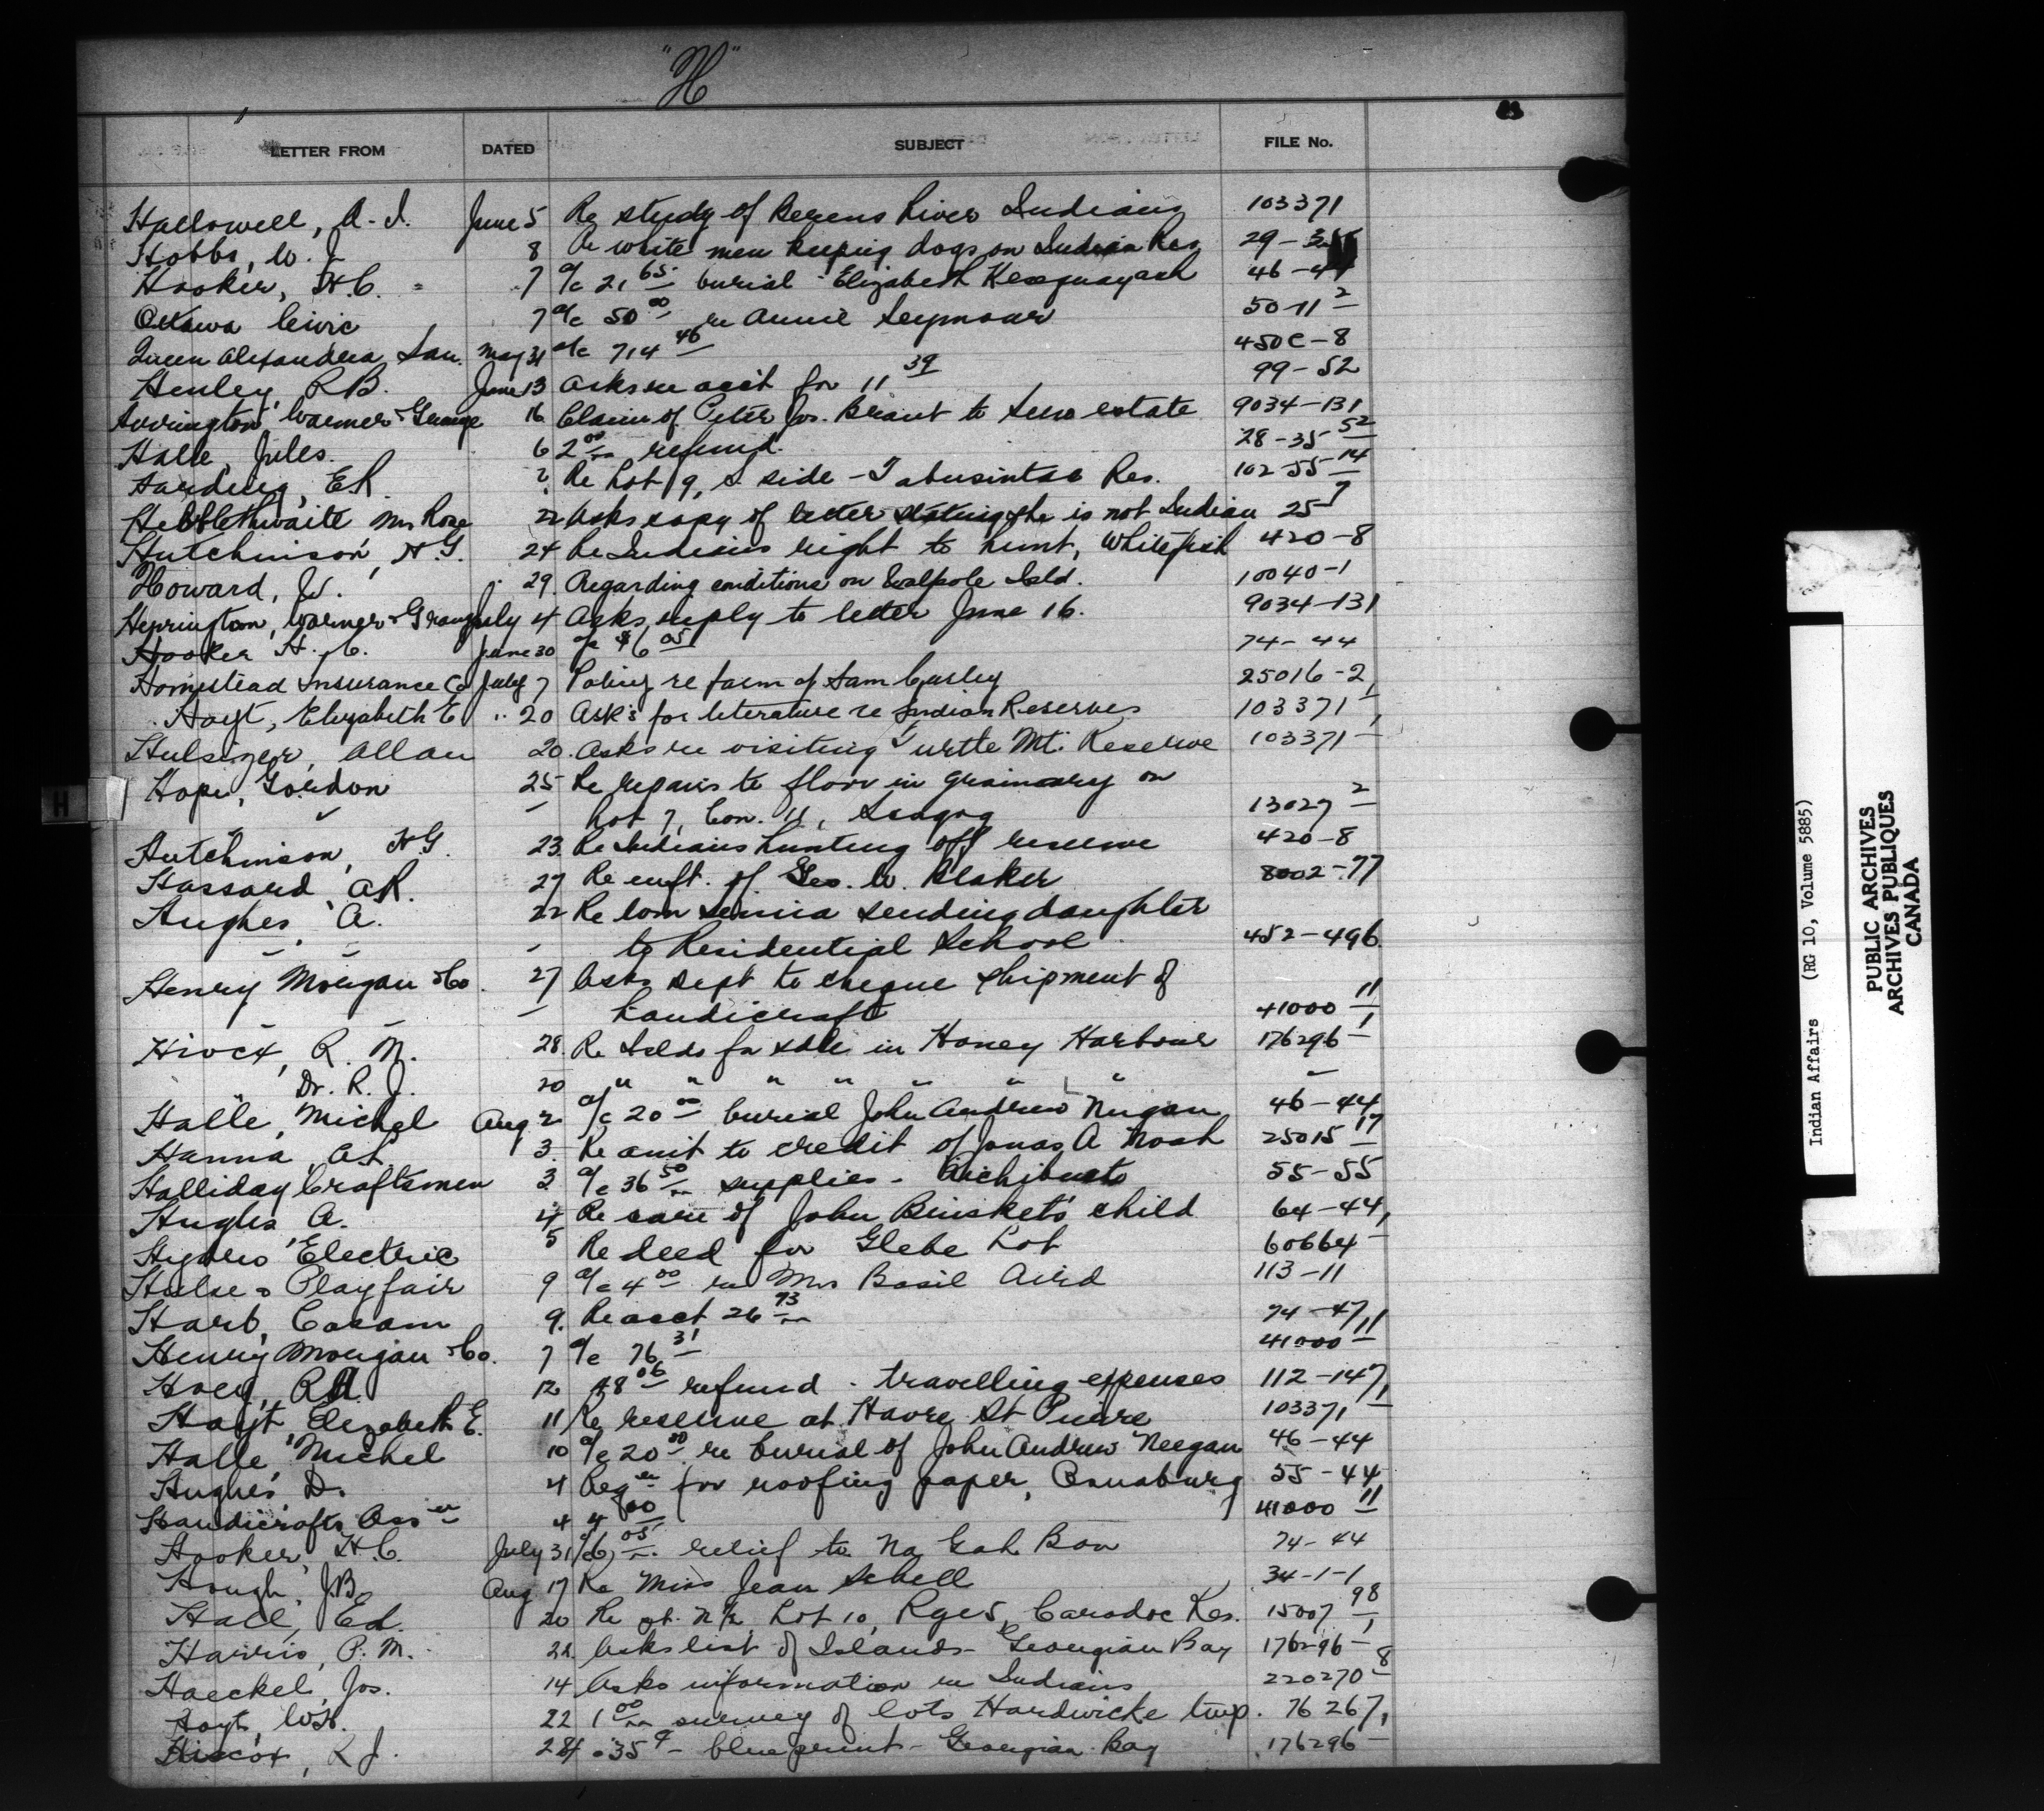 "H"
LETTER FROM DATED SUBJECT FILE No.
Hallowell, A. I. June 5 Re study of Berens River Indians 103371
Hobbs, W. J. 8 Re white men keeping dogs on Indian Res 29-3
Hooker, H.C. 7 a/c 21 65 burial Elizabeth 46-44
Ottawa Civic 7 a/c 50 00 re Annie Seymour 50-11 2
Queen Alexandra San. May 31 a/c 714 46 450C-8
Henley, R.B. June 13 Asks re acct for 11 39 99-52
Warner & Grange 16 Claim of Peter Jos. Brant to estate 9034-131
Halle, Jules. 6 2 00 refund. 28-35-52
Harding, E.R. ? Re Lot 19, S. side - Tabusintac Res. 102-55-14
Hebblethwaite Mrs Rose 22 Asks copy of letter stating she is not Indian 25 7
Hutchinson, H.G. 24 Re Indians right to hunt, Whitefish 420-8
Howard, W. 29. Regarding conditions on Walpole Isld. 10040-1
Herrington, Warner & Grange July 4 Asks reply to letter June 16. 9034-131
Hooker H. C. June 30 a/c $6 05 74-44
Homestead Insurance Co July 7 Policy re farm of Sam Curley 25016-2
Hoyt, Elizabeth E " 20 Ask's for literature re Indian Reserves 103371-1
Hulsizer, Allan 20. Asks re visiting Turtle Mt. Reserve 103371-
Hope, Gordon 25 Re repairs to floor in grainary on
Lot 7, Con. 11, Scugog 13027 2
Hutchinson, H.G. 23. Re Indians hunting off reserve 420-8
Hassard, A.R. 27 Re enft. of Geo. W. Blaker 8002-77
Hughes, A. 22 Re Tom sending daughter
to Residential School 452-496
Henry Morgan & Co. 27 Asks Dept to cheque shipment of
handicraft 41000 11
R. M. 28. Re Islds for sale in Honey Harbour 176296-1
Dr. R. J. 20 " " " " " " " -
Halle, Michel Aug 2 a/c 20 00 burial John Andrew Neegan 46-44
Hanna, A.T. 3. Re amt to credit of Jonas A Noah 25015 17
Halliday Craftsmen 3 a/c 36 50 supplies - Richibucto 55-55
Hughes A. 4 Re care of John Brisket's child 64-44
Hydro Electric 5 Re deed for Glebe Lot 60664-1
Hulse & Playfair 9 a/c 4 00 re Mrs Basil Aird 113-11
Harb, Casam 9. Re acct 26 93 74-47
Henry Morgan & Co. 7 a/c 76 31 41000 11
Hoey, R.A. 12 48 06 refund - travelling expenses 112-147
Hoyt Elizabeth E. 11 Re reserve at Havre St Pierre 103371-1
Halle, Michel 10 a/c 20 00 re burial of John Andrew Neegan 46-44
Hughes D. 4 Reqn for roofing paper, Osnaburg 55-44
Handicrafts Ass'n 4 4 00 41000 11
Hooker, H.C. July 31 a/c 6 05 relief to Na Gah Bow 74-44
Hough, J.B. Aug 17 Re Miss Jean Schell 34-1-1
Hall, Ed. 20 Re pt. N½ Lot 10, Rge 5, Caradoc Res. 15007 98
Harris, P. M. 22. Asks list of Islands - Georgian Bay 176296-1
Haeckel, Jos. 14 Asks information re Indians 220270-8
Hoyt, W.H. 22 1 00 survey of lots Hardwicke twp. 76267
Hiscox, R J. 24 .35¢ - blueprint - Georgian Bay 176296-1
H
Indian Affairs (RG 10, Volume 5885)
PUBLIC ARCHIVES
ARCHIVES PUBLIQUES
CANADA